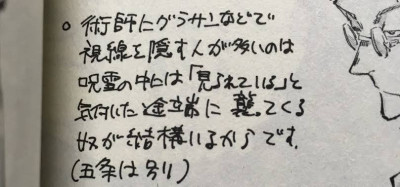 ○ 術師にグラサンなどで
視線を隠す人が多いのは
呪霊の中には「見られている」と
気付いたと途端に襲ってくる
奴が結構いるからです。
(五条は別り)